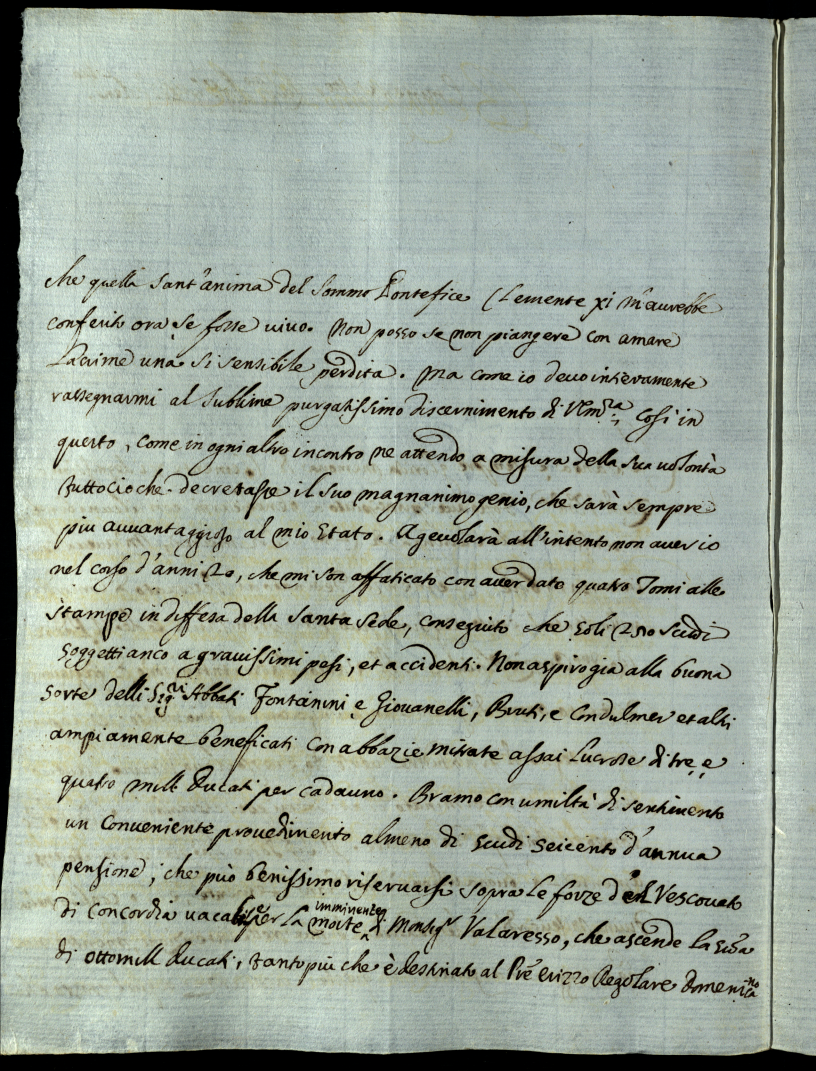 che quella sant'anima del Sommo Pontefice Clemente xi m'aurebbe
conferito ora se fosse uiuo. Non posso se non piangere con amare
Lacrime una si sensibile perdita. Ma come io deuo intieramente
rassegnarmi al sublime purgatissimo discernimento di V. Em.za così in
questo, come in ogni altro incontro ne attendo a misura della sua uolontà
tuttociò che decretasse il suo magnanimo genio, che sarà sempre
piu auuantaggioso al mio stato. Ageuolarà all'intento non auer io
nel corso d'anni 20, che mi son affaticato con auer dato quatro Tomi alle
stampe in diffesa della Santa Sede, conseguito che soli 250 scudi
soggetti anco a grauissimi pesi, et accidenti. Non aspiro gia alla buona
sorte delli Sig.ri Abbati Fontanini e Giouanelli, Bruti, e Condulmer et altri
ampiamente beneficati con abbazie mitrate assai Lucrose di tre e
quatro mill ducati per cadauno. Bramo con umiltà di sentimento
un conueniente prouedimento almeno di scudi seicento d'annua
pensione, che può benissimo riseruarsi sopra le forze del Vescouato
di Concordia uacabile per la imminente morte di Monsig.r Valaresso, che ascende la
di ottomill ducati, tanto più che è destinato al Pre Erizzo Regolare Domenicano